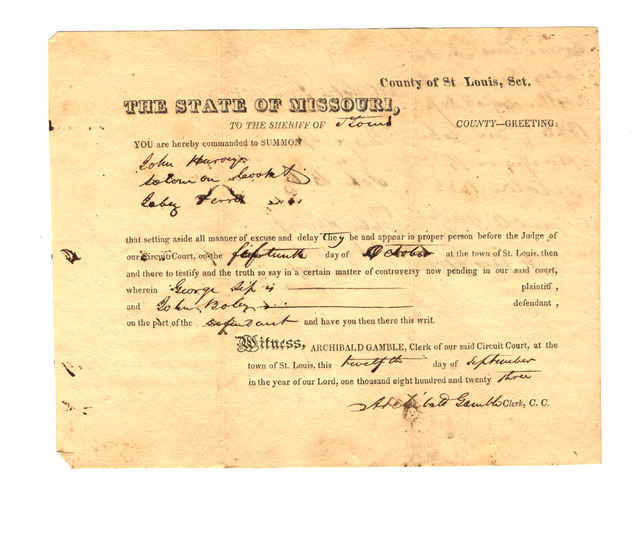 County of St Louis, Sct.
THE STATE OF MISSOURI,
TO THE SHERIFF OF St Louis COUNTY—GREETING:
YOU are hereby commanded to SUMMON
John
Solomon
Jabez Ferris
that setting aside all manner of excuse and delay they be and appear in proper person before the Judge of
our Circuit Court, on the day of October at the town of St. Louis, then
and there to testify and the truth so say in a certain matter of controversy now pending in our said court,
wherein George Sip is plaintiff,
and John Boley is defendant,
on the part of the defendant and have you then there this writ.
Witness, ARCHIBALD GAMBLE, Clerk of our said Circuit Court, at the
town of St. Louis, this twelfth day of September
in the year of our Lord, one thousand eight hundred and twenty three
Archibald Gamble Clerk, C. C.